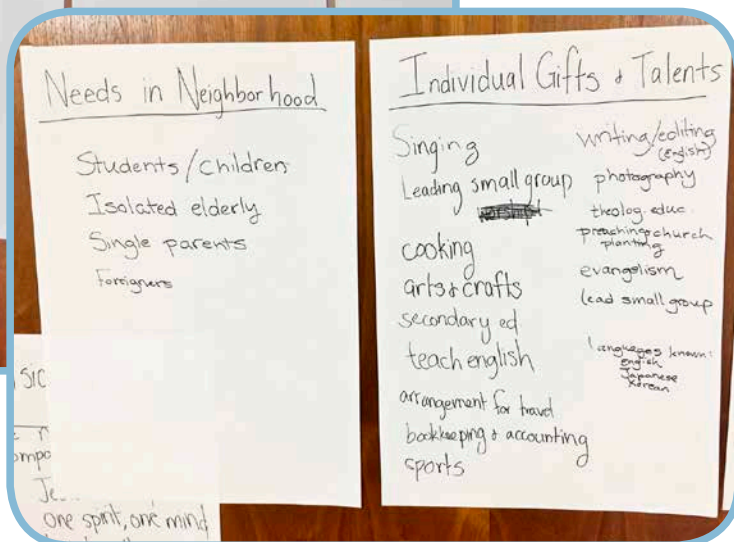 Needs in Neighborhood
Students/children
Isolated elderly
Single parents
Foreigners
Individual Gifts & Talents
Singing
Leading small group
cooking
arts & crafts
secondary ed
teach english
arrangement for travel
bookkeeping & accounting
sports
writing/editing
(English)
photography
theolog. educ.
preaching church
planting
evangelism
lead small group
languages known:
English
Japanese
Korean
sic
Je...
one spirit, one mind